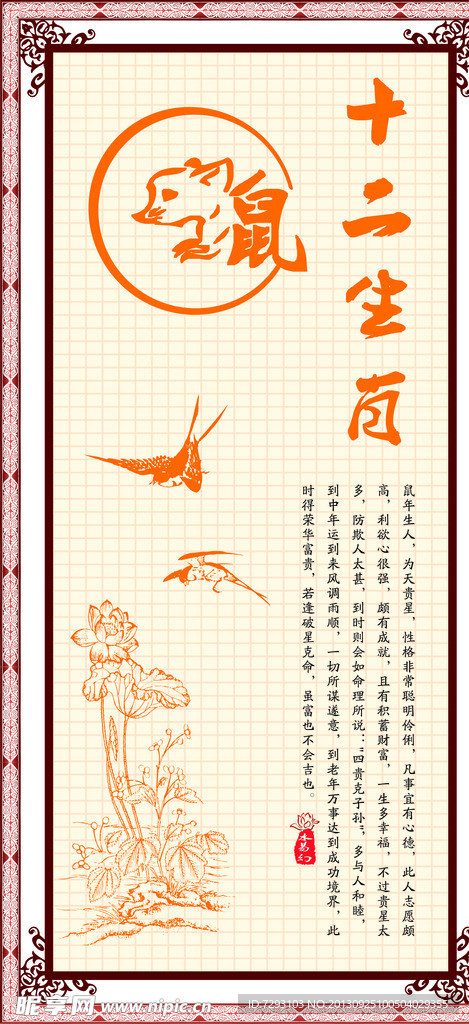 十二生肖
鼠
鼠年生人，为天贵星，性格非常聪明伶俐，凡事宜有心德，此人志愿颇
高，利欲心很强，颇有成就，且有积蓄财富，一生多幸福，不过贵星太
多，防欺人太甚，到时则会如命理所说：“四贵克子孙”，多与人和睦，
到中年运到来风调雨顺，一切所谋遂意，到老年万事达到成功境界，此
时得荣华富贵，若逢破星克命，虽富也不会吉也。
水易幻
昵享网 www.nipic.cn
ID:7293103 NO.20130925100504029355